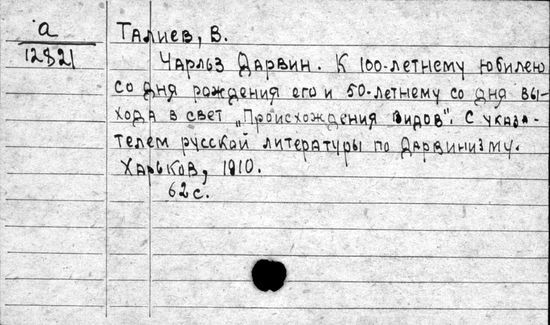 а
12821
Талиев, В.
Чарльз Дарвин. К 100-летнему юбилею
со дня рождения его и 50-летнему со дня вы-
хода в свет „Происхождения видов". С указа-
телем русской литературы по Дарвинизму.
Харьков, 1910.
62 с.